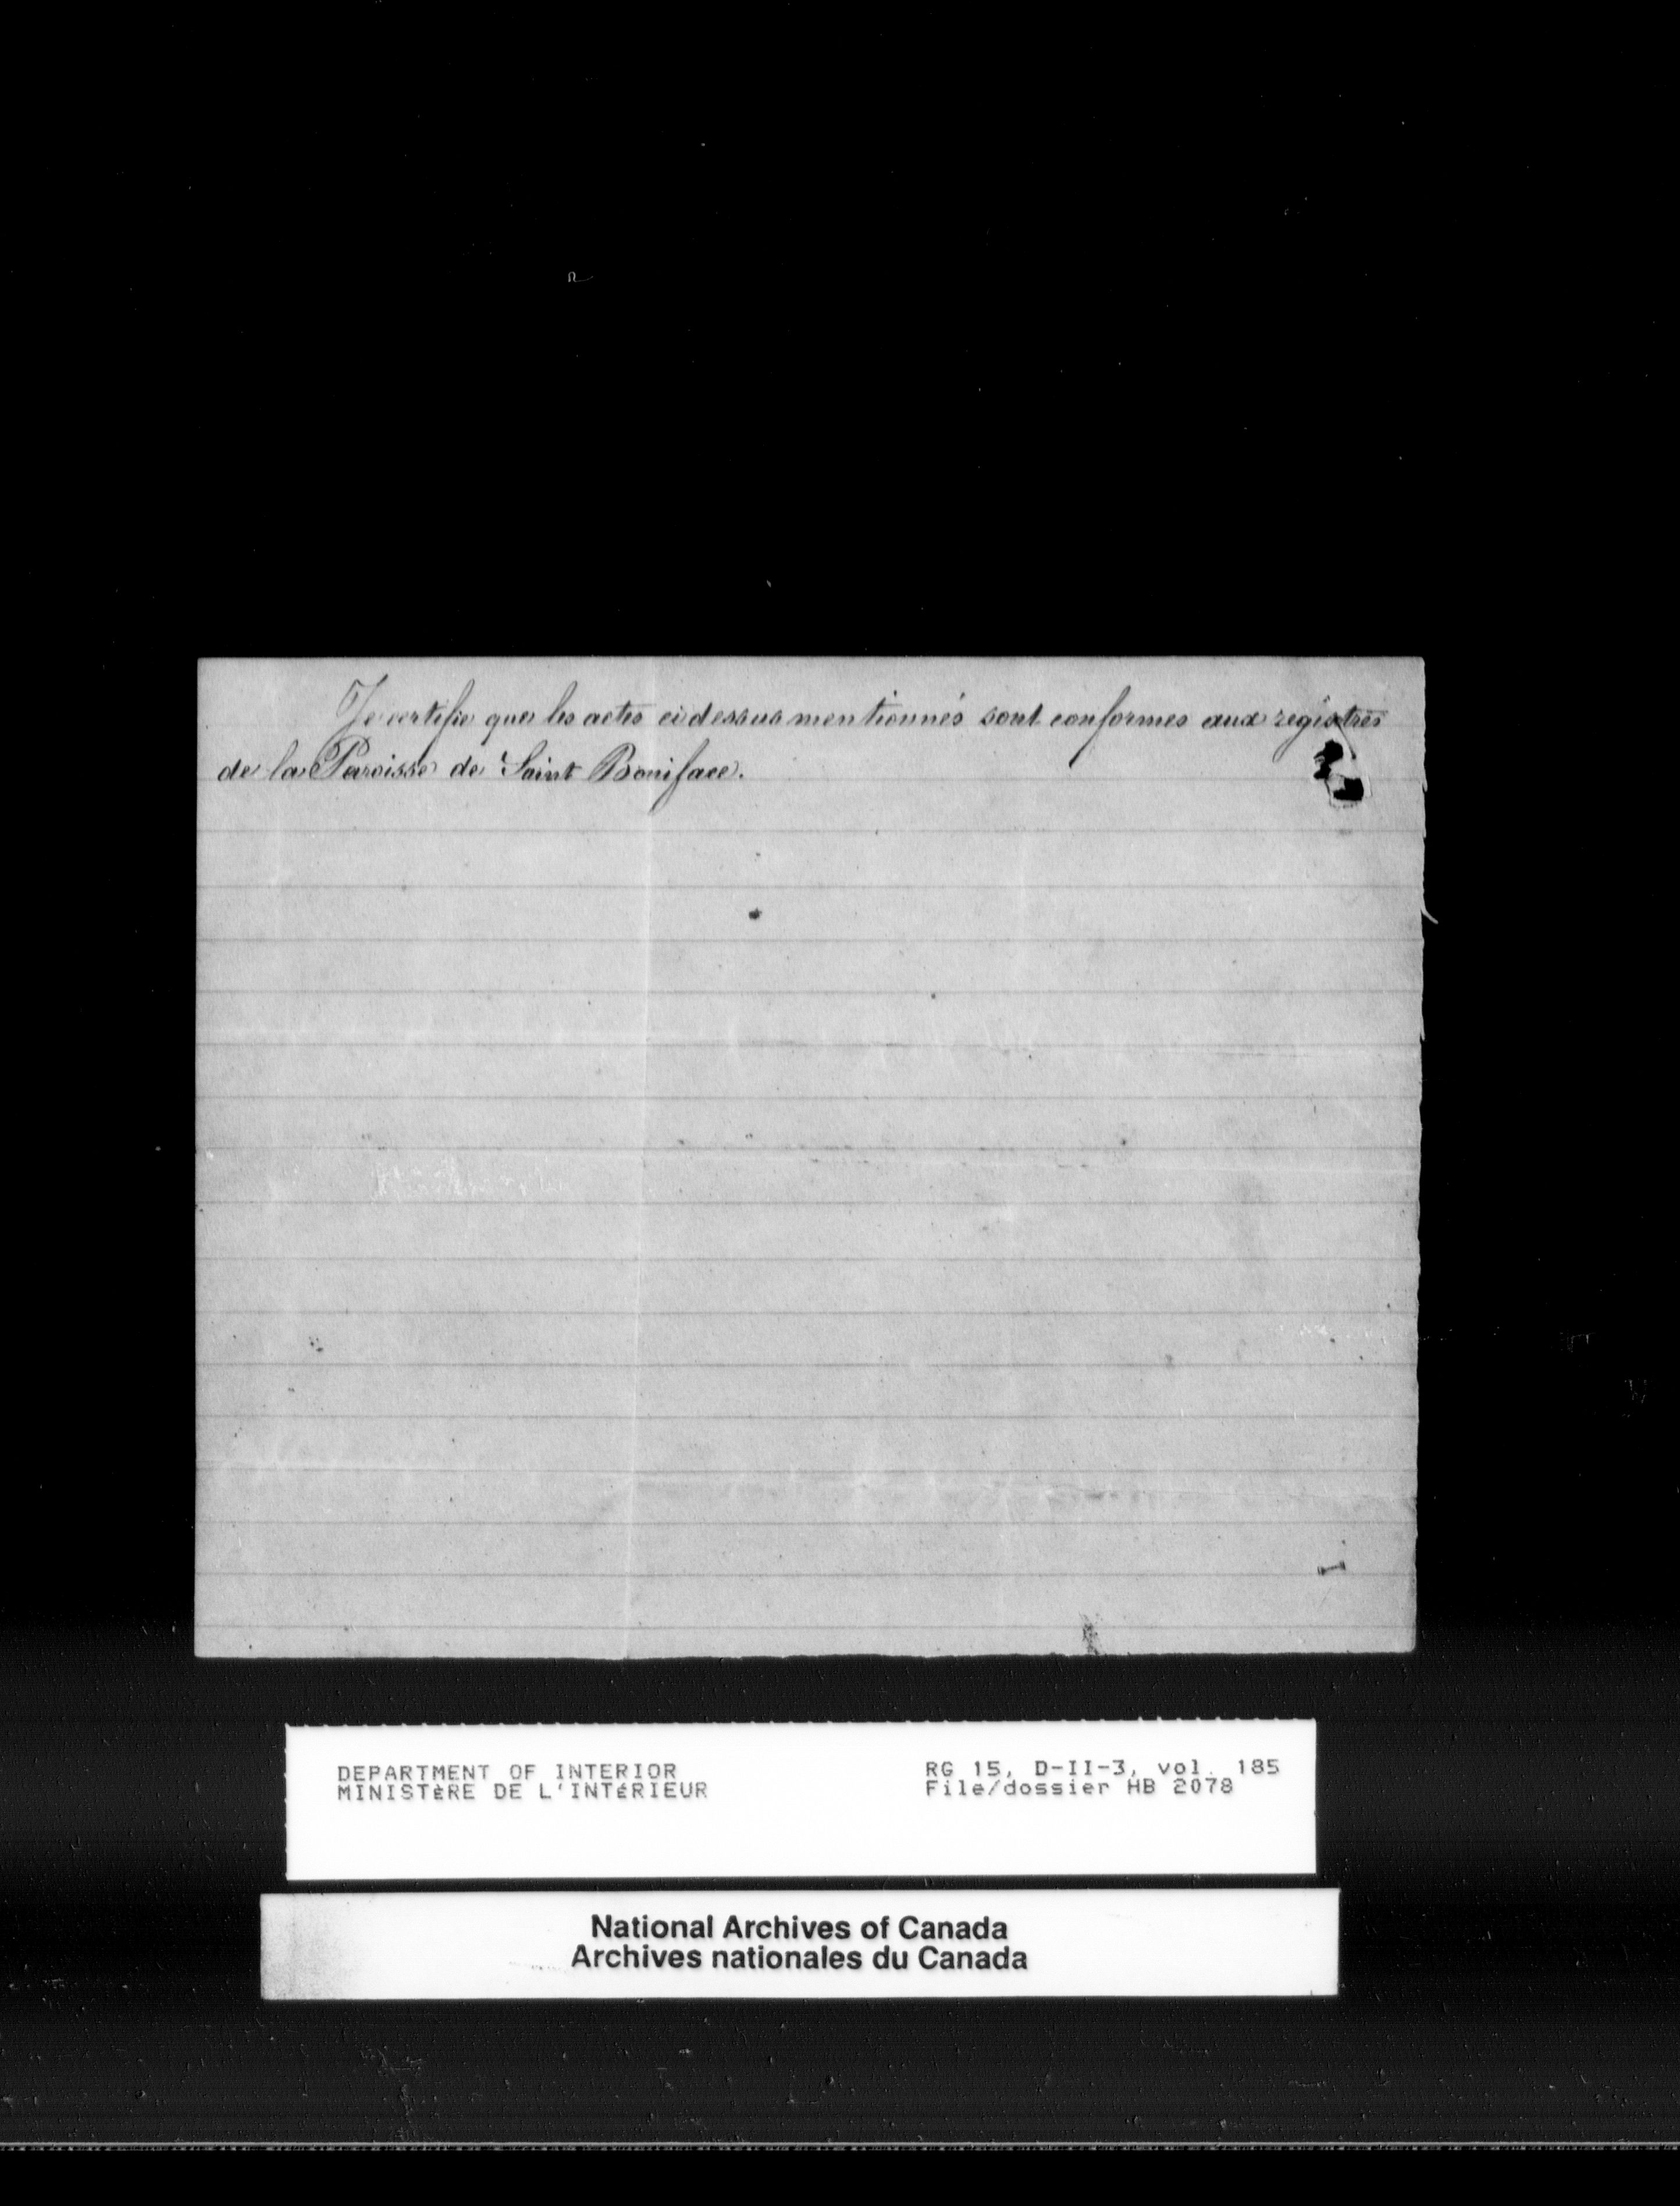 Je certifie que les actes ci dessus mentionnés sont conformes aux registres
de la Paroisse de Saint Boniface.
DEPARTMENT OF INTERIOR
MINISTÈRE DE L'INTÉRIEUR
RG 15, D-II-3, vol. 185
File/dossier HB 2078
National Archives of Canada
Archives nationales du Canada